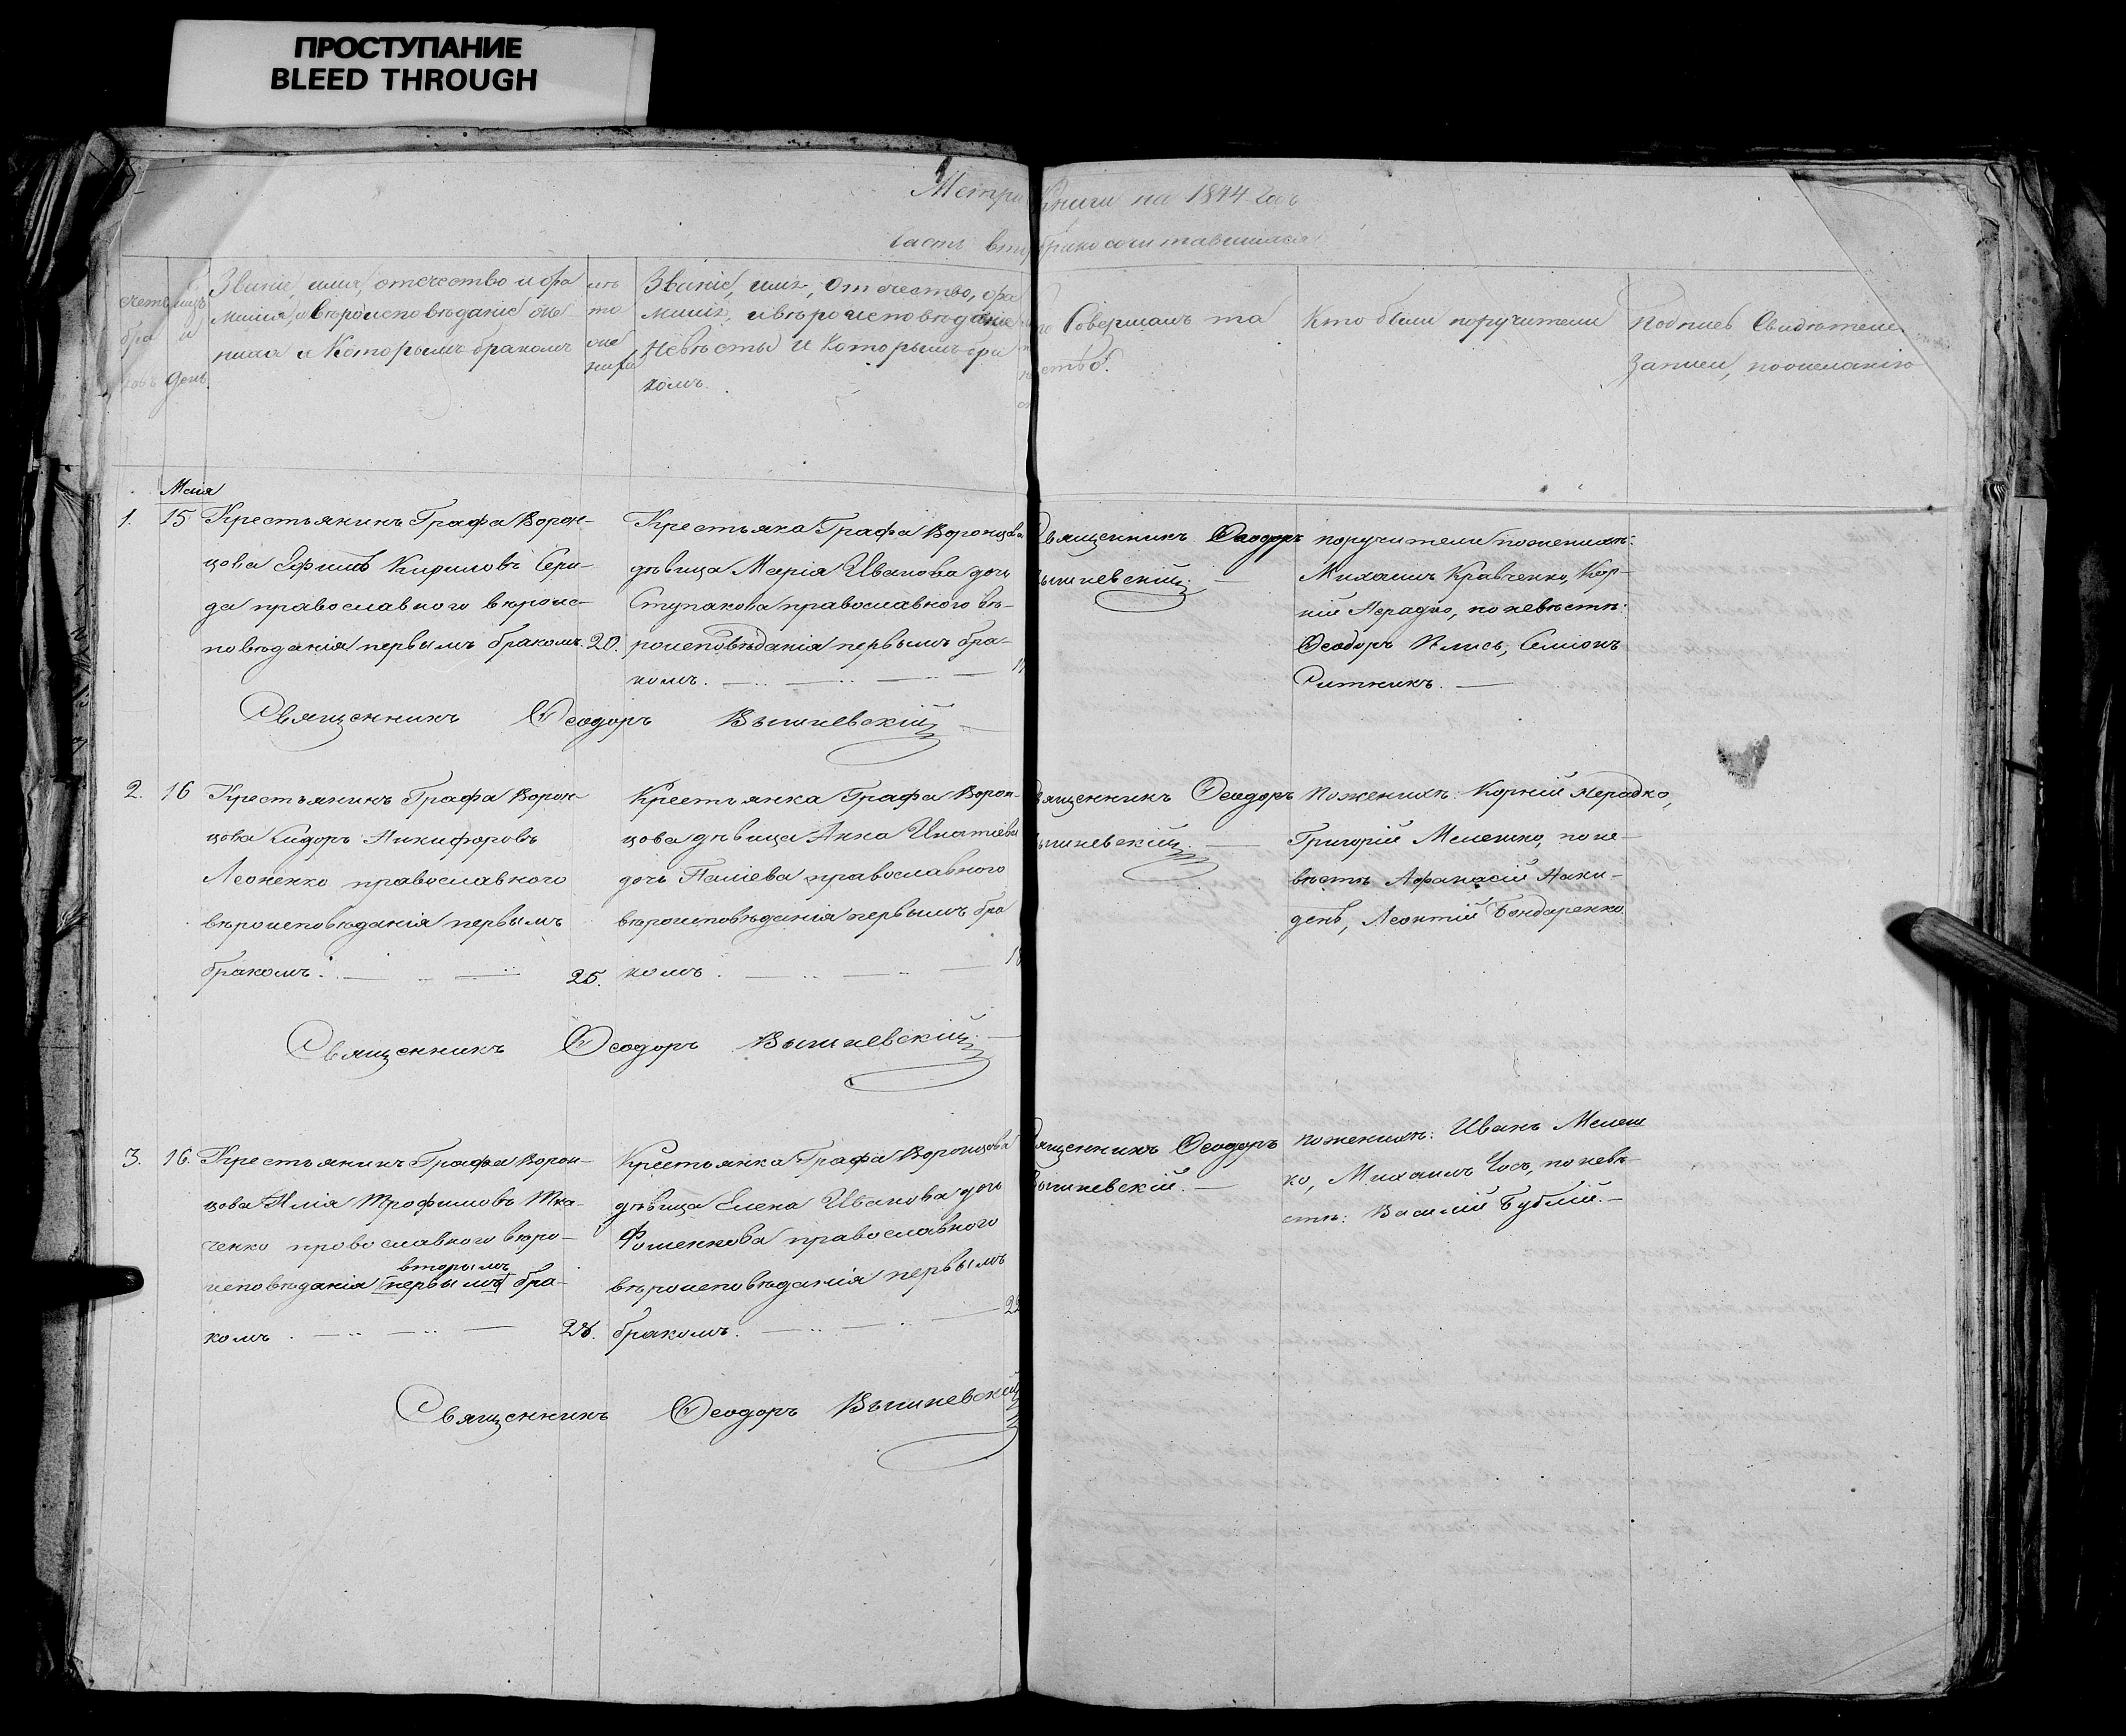 ПРОСТУПАНИЕ
BLEED THROUGH
Метри Книги на 1844 годъ
Часть вто бракосочитавшихся
счетъ бра ковъ
мцъ и день
Званіе, имя, отечество и фа
милія, и вѣроисповѣданіе же
ниха и Которымъ бракомъ
лѣ
та
же
ниха
Званіе, имя, Отечество, фа
милія, и вѣроисповѣданіе
Невѣсты и Которымъ бра
комъ.
Совершалъ та
ство.
Кто были поручители
Подпись Свидѣтелей
Записи, по желанію
Маія
1. 15 Крестьянинъ Графа Ворон-
цова Ефимъ Кириловъ Сери-
да православнаго вѣроис-
повѣданія первымъ бракомъ. 20.
Крестьянка Графа Воронцова
дѣвица Марія Иванова дочь
Ступакова православнаго вѣ-
роисповѣданія первымъ бра-
комъ.
Священникъ Ѳеодоръ
Вышневскій
поручители по женихѣ:
Михаилъ Кравченко, Кор-
ній Мерадко, по невѣстѣ:
Ѳеодоръ Клись, Семіонъ
Ситникъ.
Священникъ Ѳеодоръ Вышневскій
2. 16 Крестьянинъ Графа Ворон-
цова Сидоръ Никифоровъ
Леоненко православнаго
вѣроисповѣданія первымъ
бракомъ. 25.
Крестьянка Графа Ворон-
цова дѣвица Анна Игнатіева
дочь Паліева православнаго
вѣроисповѣданія первымъ бра
комъ.
Священникъ Ѳеодоръ
Вышневскій
По женихѣ: Корній Мерадко,
Григорій Мелешко, по не-
вѣстѣ Афанасій Наки-
день, Леонтій Бондаренко.
Священникъ Ѳеодоръ Вышневскій
3. 16. Крестьянинъ Графа Ворон-
цова Илія Трофимовъ Тка-
ченко православнаго вѣро-
вторымъ
исповѣданія первымъ бра-
комъ. 28.
Крестьянка Графа Воронцова
дѣвица Елена Иванова дочь
Фоменкова православнаго
вѣроисповѣданія первымъ
бракомъ. 22
Священникъ Ѳеодоръ
Вышневскій.
по женихѣ: Иванъ Мелеш
ко, Михаилъ Чосъ, по невѣ-
стѣ: Василій Бублій.
Священникъ Ѳеодоръ Вышневскій